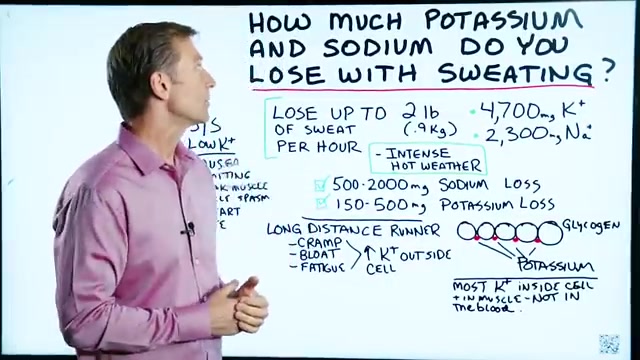 HOW MUCH POTASSIUM
AND SODIUM DO YOU
LOSE WITH SWEATING?
LOSE UP TO 2 lb
OF SWEAT (.9 Kg)
PER HOUR
- INTENSE
HOT WEATHER
• 4,700mg K+
• 2,300mg Na+
500-2000mg SODIUM LOSS
150-500mg POTASSIUM LOSS
LONG DISTANCE RUNNER
- CRAMP
- BLOAT
- FATIGUE
↑ K+ OUTSIDE
CELL
GLYCOGEN
POTASSIUM
MOST K+ INSIDE CELL
+ IN MUSCLE - NOT IN
the blood.
S/S
LOW K+
MUSCLE
SPASM